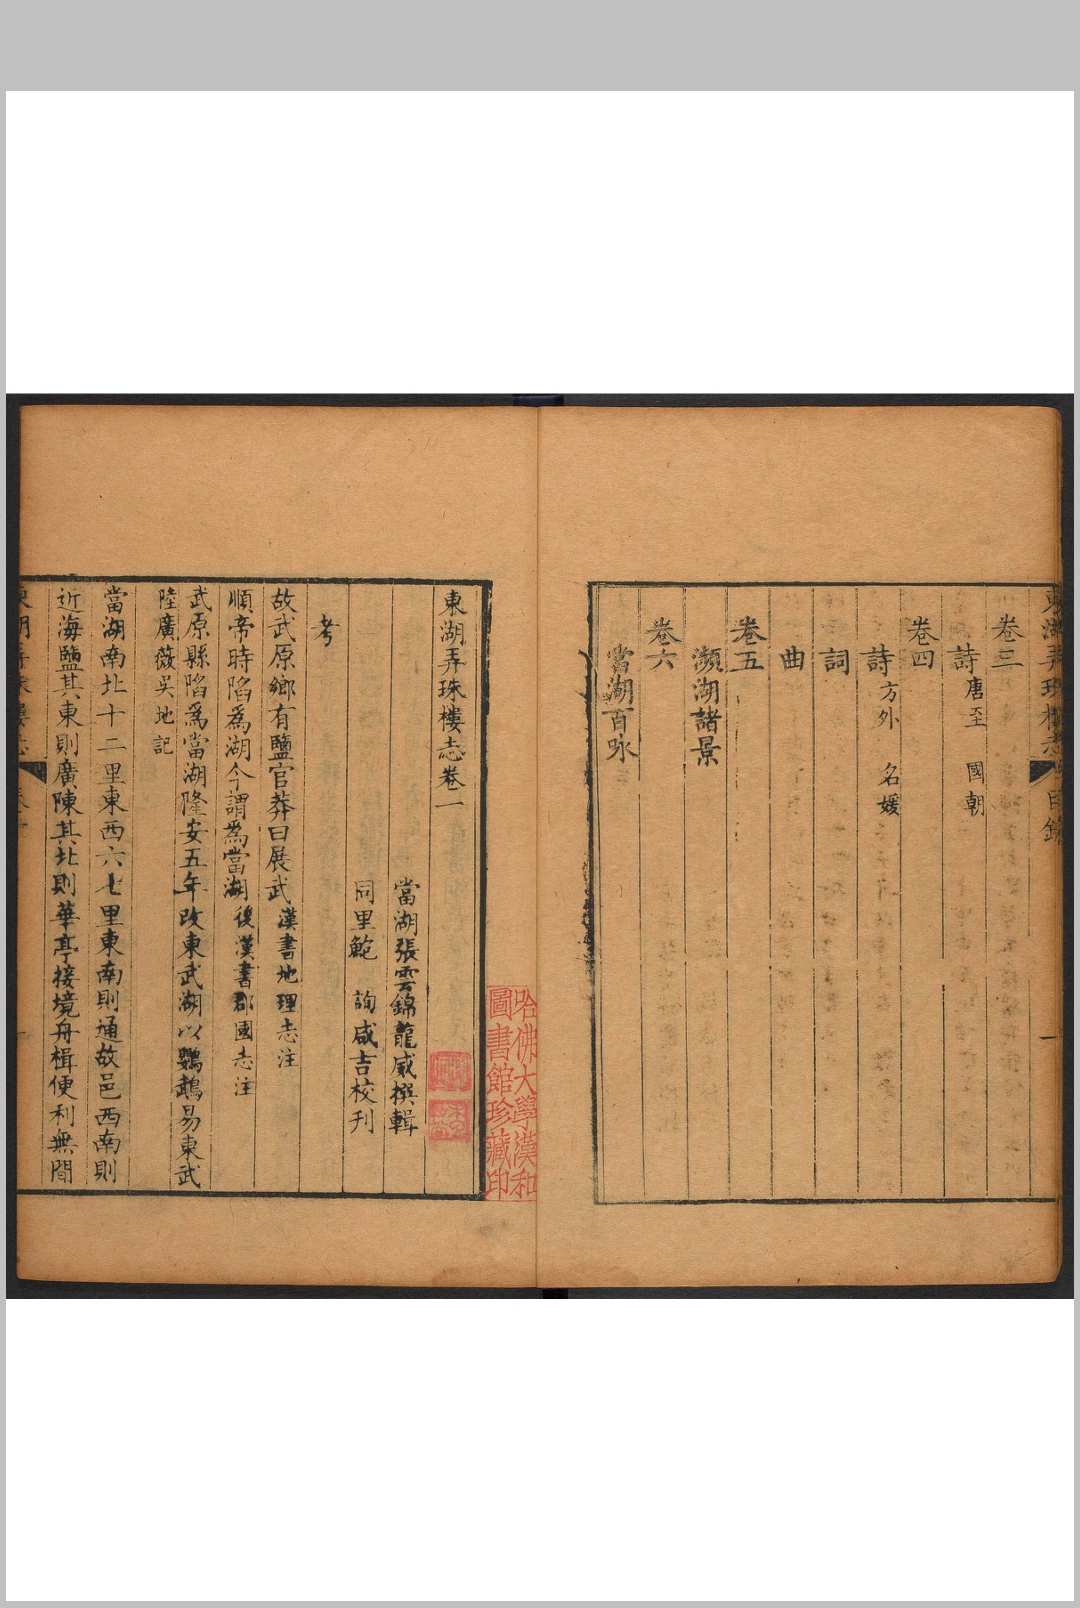 東湖弄珠樓志 目錄 一
卷三
詩 唐至 國朝
卷四
詩 方外 名媛
詞
曲
卷五
瀕湖諸景
卷六
當湖百咏
哈佛大學漢和
圖書館珍藏印
東湖弄珠樓志卷一
當湖張雲錦龍威撰輯
同里鮑 詢咸吉校刊
考
故武原鄉有鹽官莽曰展武 漢書地理志注
順帝時陷為湖今謂為當湖 後漢書郡國志注
武原縣陷為當湖隆安五年改東武湖以鸚鵡易東武
陸廣薇吳地記
當湖南北十二里東西六七里東南則通故邑西南則
近海鹽其東則廣陳其北則華亭接境舟楫便利無間
東湖弄珠樓志